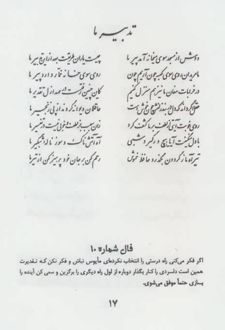 تدبیر ما
دوش از مسجد سوی میخانه آمد پیر ما
چیست یاران طریقت بعد از این تدبیر ما
ما مریدان روی سوی کعبه چون آریم چون
روی سوی خانه خمار دارد پیر ما
در خرابات مغان ما نیز هم منزل کنیم
کاین چنین رفتست در عهد ازل تقدیر ما
عقل گر داند که دل در بند زلفش چون خوش است
عاقلان دیوانه گردند از پی زنجیر ما
روی خوبت آیتی از لطف بر ما کشف کرد
زان سبب جز لطف و خوبی نیست در تفسیر ما
با دل سنگینت آیا هیچ درگیرد شبی
آه آتشناک و سوز ناله شبگیر ما
تیر آه ما ز گردون بگذرد حافظ خموش
رحم کن بر جان خود پرهیز کن از تیر ما
فال شماره ۱۰
اگر فکر می‌کنی راه درستی را انتخاب نکرده‌ای مأیوس نباش و فکر نکن که تقدیرت
همین است دلسردی را کنار بگذار دوباره از اول راه دیگری را برگزین و سعی کن آینده را
بسازی حتماً موفق می‌شوی.
۱۷